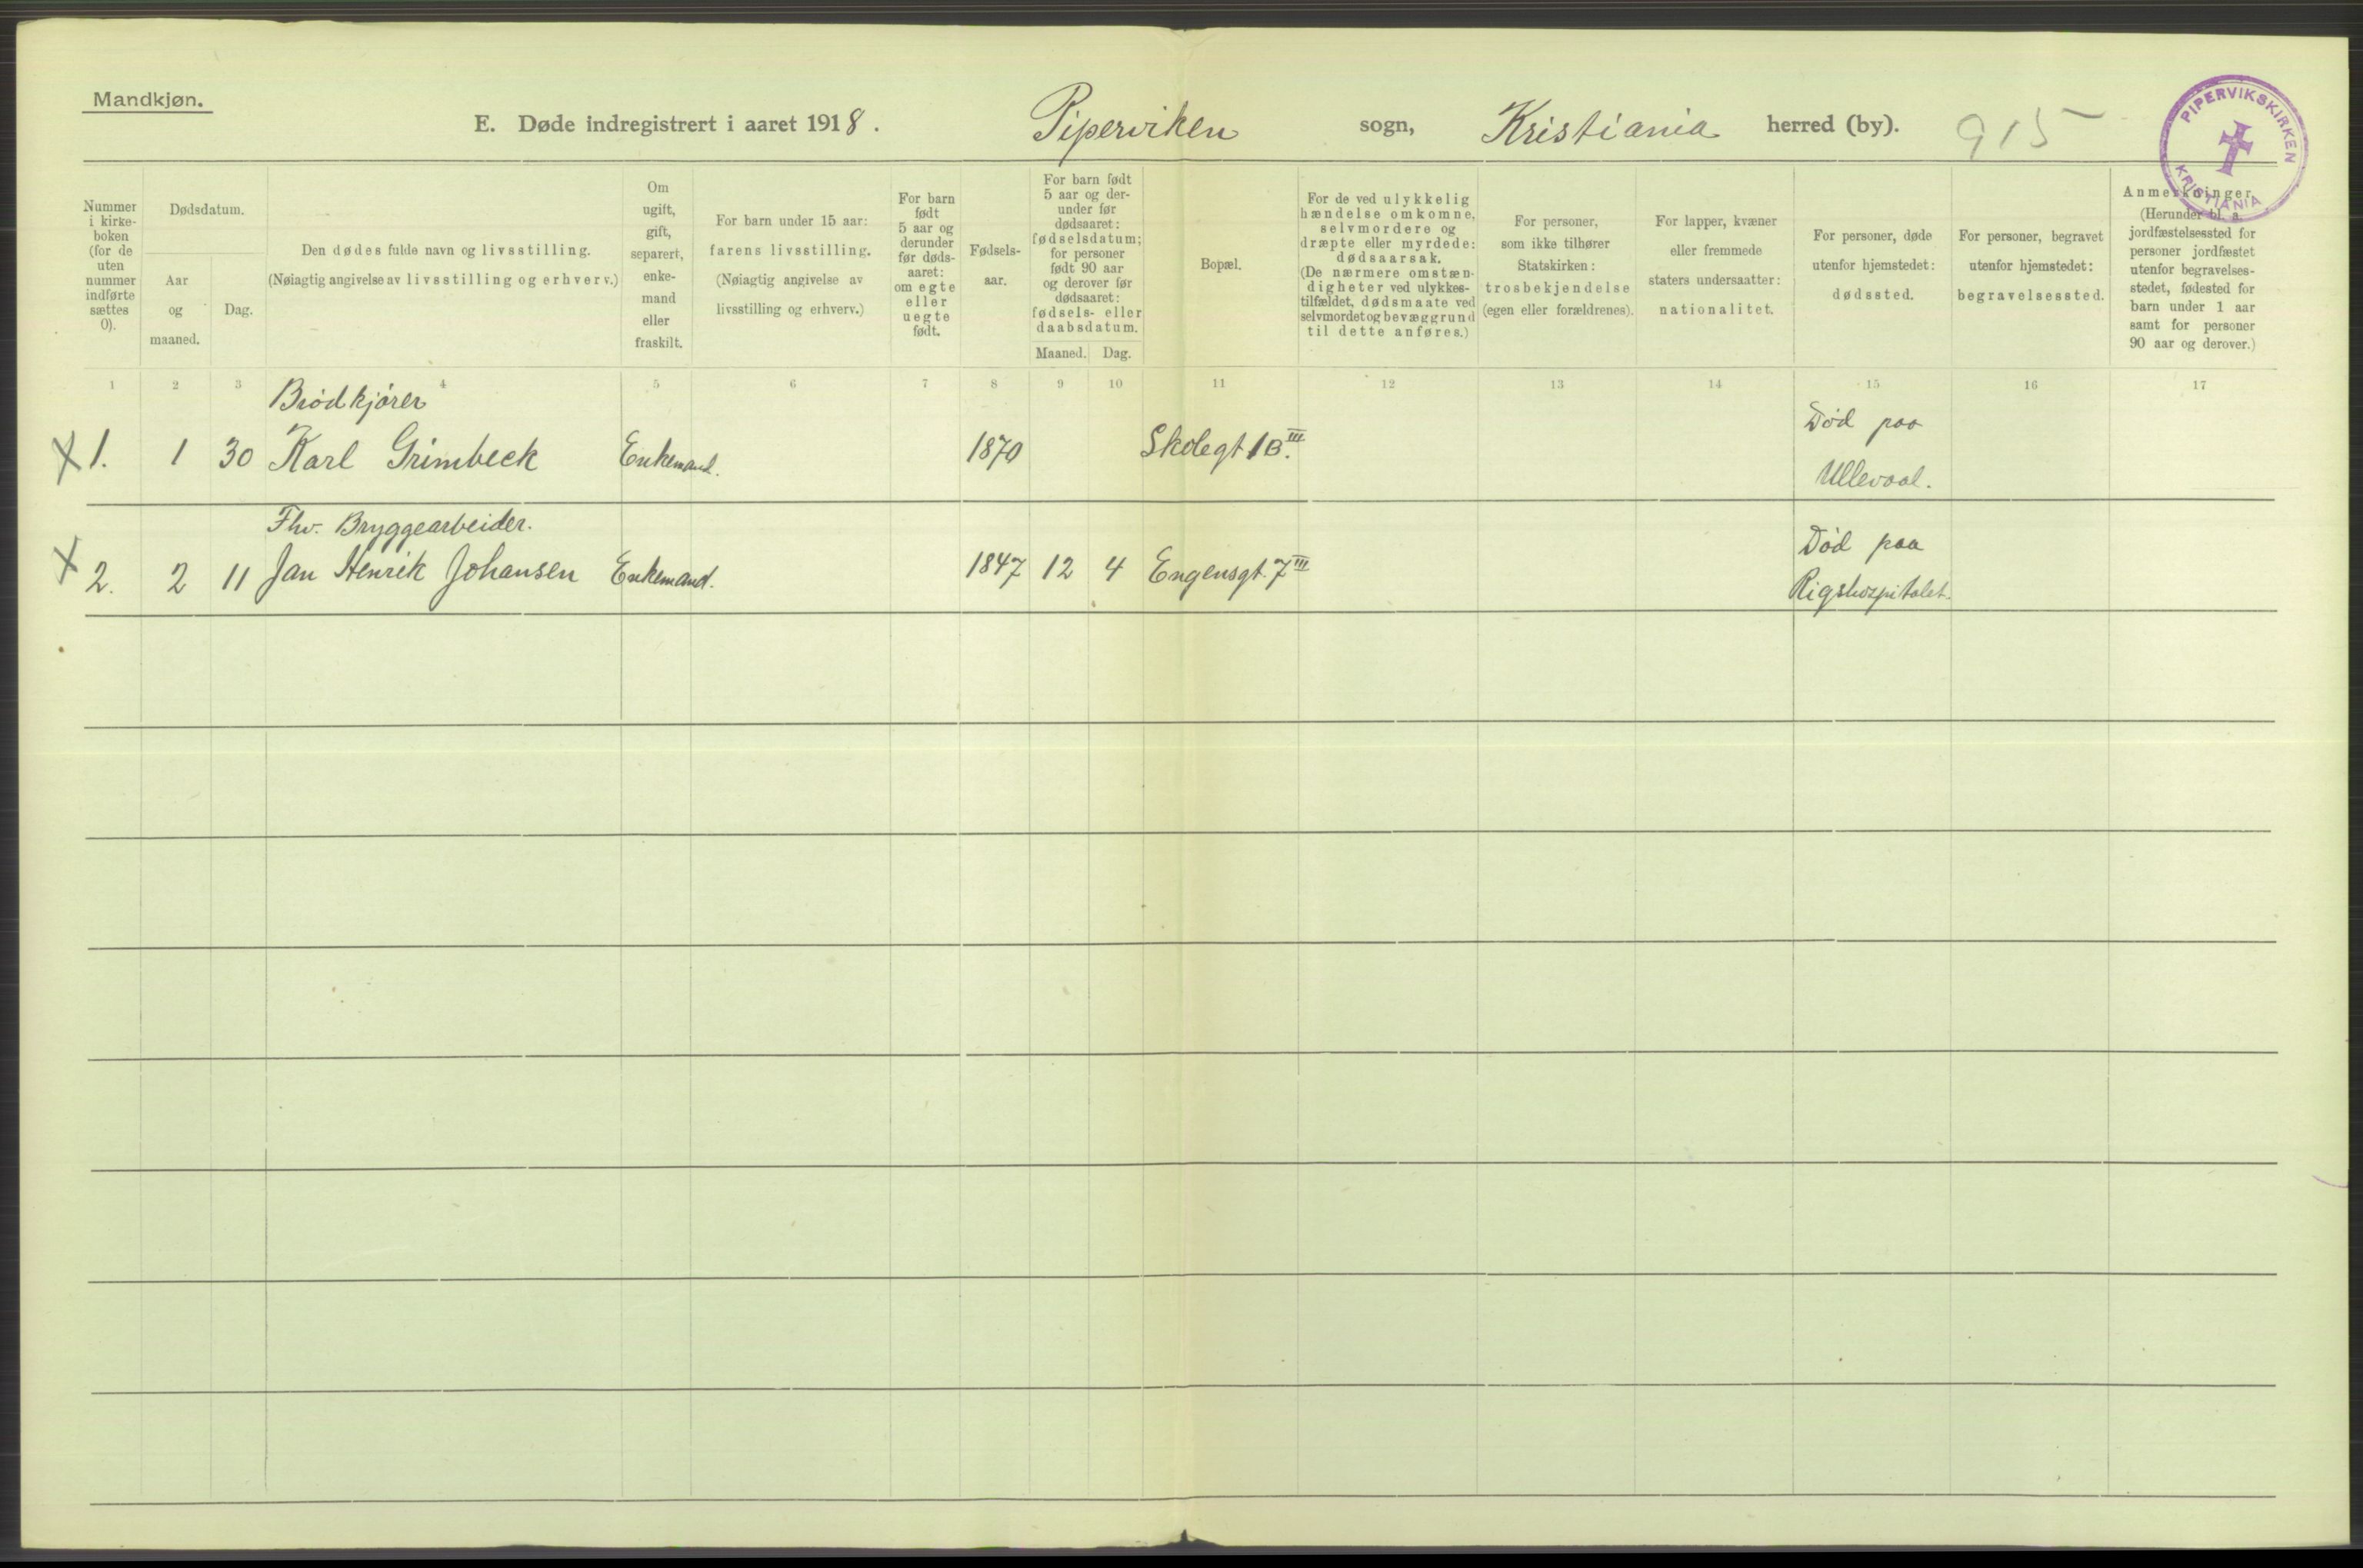 Mandkjøn.
E. Døde indregistrert i aaret 1918. Piperviken sogn, Kristiania herred (by). 915
PIPERVIKSKIRKEN
KRISTIANIA
Nummer
i kirke-
boken
(for de
uten
nummer
indførte
sættes
0).
Dødsdatum.
Aar
og
maaned.
Dag.
Den dødes fulde navn og livsstilling.
(Nøiagtig angivelse av livsstilling og erhverv.)
Om
ugift,
gift,
separert,
enke-
mand
eller
fraskilt.
For barn under 15 aar:
farens livsstilling.
(Nøiagtig angivelse av
livsstilling og erhverv.)
For barn
født
5 aar og
derunder
før døds-
aaret:
om egte
eller
uegte
født.
Fødsels-
aar.
For barn født
5 aar og der-
under før
dødsaaret:
fødselsdatum;
for personer
født 90 aar
og derover før
dødsaaret:
fødsels- eller
daabsdatum.
Maaned. Dag.
Bopæl.
For de ved ulykkelig
hændelse omkomne,
selvmordere og
dræpte eller myrdede:
dødsaarsak.
(De nærmere omstæn-
digheter ved ulykkes-
tilfældet, dødsmaate ved
selvmordet og bevæggrund
til dette anføres.)
For personer,
som ikke tilhører
Statskirken:
trosbekjendelse
(egen eller forældrenes).
For lapper, kvæner
eller fremmede
staters undersaatter:
nationalitet.
For personer, døde
utenfor hjemstedet:
dødssted.
For personer, begravet
utenfor hjemstedet:
begravelsessted.
Anmerkninger
(Herunder bl. a.
jordfæstelsessted for
personer jordfæstet
utenfor begravelses-
stedet, fødested for
barn under 1 aar
samt for personer
90 aar og derover.)
1 2 3 4 5 6 7 8 9 10 11 12 13 14 15 16 17
Brödkjörer
Död paa
X 1. 1 30 Karl Grimbeck Enkemand. 1870 Skolegt 1B.III
Ullevaal.
Fhv. Bryggearbeider.
Död paa
X 2. 2 11 Jan Henrik Johansen Enkemand. 1847 12 4 Engensgt. 7III
Rigshospitalet.